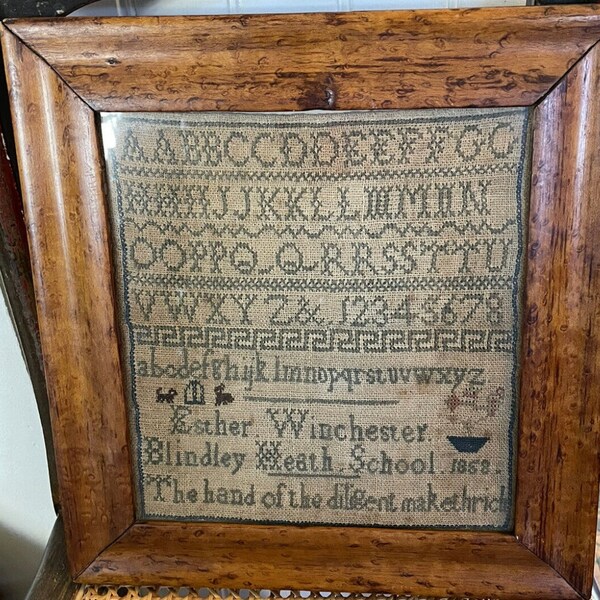 AABBCCDDEEFFGG
HHJJKKLLMN
OOPPQQRRSSTTU
VWXYZ& 12345678
abcdefghijklmnopqrstuvwxyz
Esther Winchester.
Blindley Heath School. 1868.
The hand of the diligent maketh rich